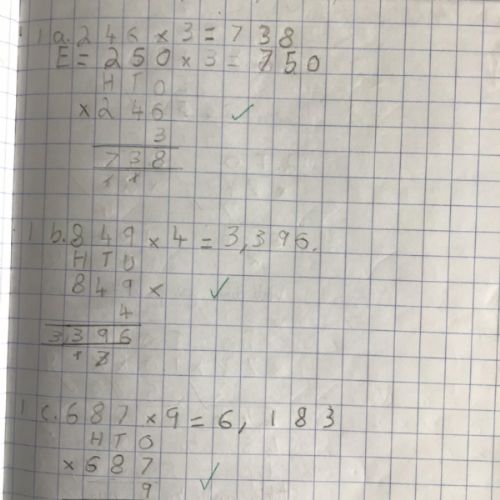 1 a. 246 × 3 = 738
E = 250 × 3 = 750
H T O
× 246
3
738
1 1
1 b. 849 × 4 = 3,396.
H T O
849 ×
4
3,396
1
1 c. 687 × 9 = 6,183
H T O
× 687
9